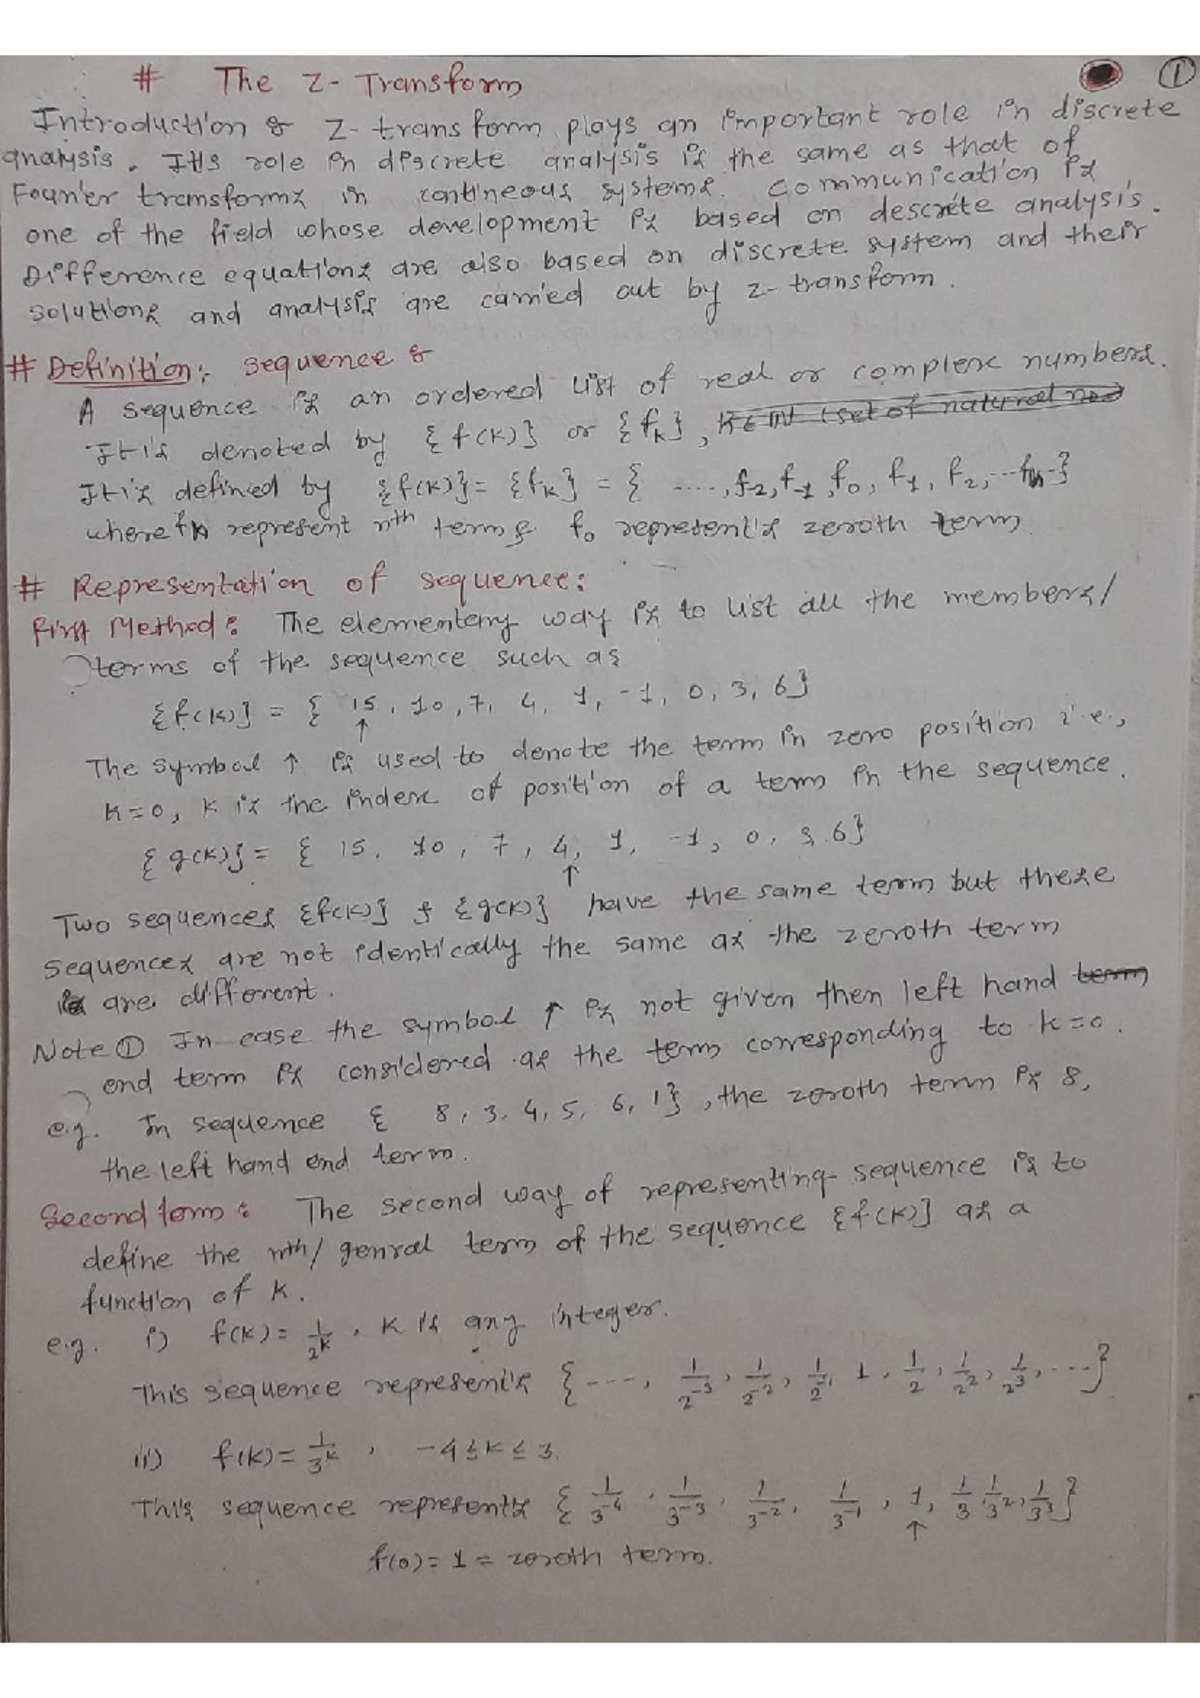 # The Z-Transform ①
Introduction : Z-transform plays an important role in discrete
analysis. Its role in discrete analysis is the same as that of
Fourier transforms in contineous systems. Communication is
one of the field whose development is based on descrete analysis.
Difference equations are also based on discrete system and their
solutions and analysis are carried out by z-transform.
# Definition: sequence :
A sequence is an ordered list of real or complex numbers.
It is denoted by {f(k)} or {fₖ}, K∈IN (set of natural no)
It is defined by {f(k)} = {fₖ} = { ...., f₋₂, f₋₁, f₀, f₁, f₂, ... fₙ ..}
where fn represent nth term & f₀ represent's zeroth term
# Representation of sequence:
First Method: The elementary way is to list all the members/
terms of the sequence such as
{f(k)} = { 15, 10, 7, 4, 1, -1, 0, 3, 6}
↑
The symbol ↑ is used to denote the term in zero position i.e.,
k=0, k is the index of position of a term in the sequence.
{g(k)} = { 15, 10, 7, 4, 1, -1, 0, 3, 6}
↑
Two sequences {f(k)} & {g(k)} have the same term but these
sequences are not identically the same as the zeroth term
is are different.
Note ① In case the symbol ↑ is not given then left hand term
end term is considered as the term corresponding to k=0.
e.g. In sequence { 8, 3, 4, 5, 6, 1}, the zeroth term is 8,
the left hand end term.
Second form: The second way of representing sequence is to
define the nth/ genral term of the sequence {f(k)} as a
function of k.
e.g. i) f(k) = 1/2^k, k is any integer.
This sequence represent's {---, 1/2^-3, 1/2^-2, 1/2^-1, 1, 1/2, 1/2^2, 1/2^3, ---}
ii) f(k) = 1/3^k, -4≤k≤3
This sequence represents { 1/3^-4, 1/3^-3, 1/3^-2, 1/3^-1, 1, 1/3, 1/3^2, 1/3^3}
↑
f(0) = 1 = zeroth term.